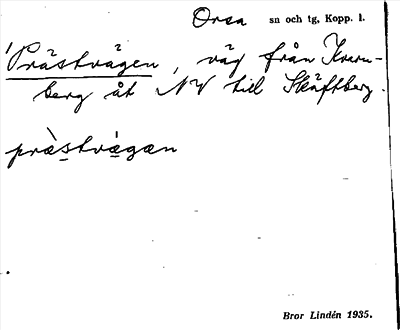 Orsa sn och tg, Kopp. l.
Prästvägen, väg från Kvarn-
berg åt NV till Skäftberg.
prästvägan
Bror Lindén 1935.